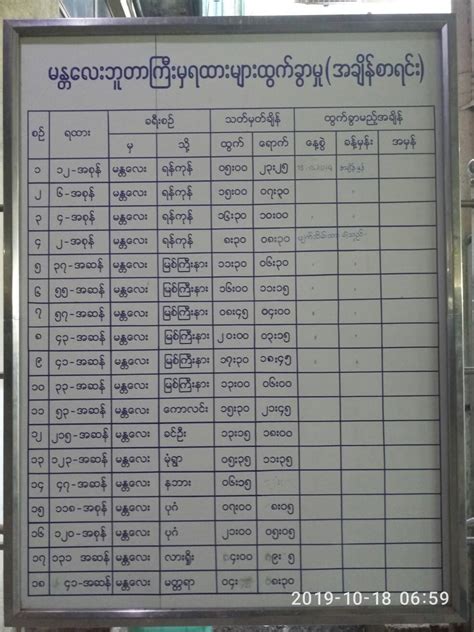 မန္တလေးဘူတာကြီးမှရထားများထွက်ခွာမှု(အချိန်စာရင်း)
စဉ် ရထား ခရီးစဉ် သတ်မှတ်ချိန် ထွက်ခွာမည့်အချိန်
မှ သို့ ထွက် ရောက် နေ့စွဲ ခန့်မှန်း အမှန်
၁ ၁၂-အစုန် မန္တလေး ရန်ကုန် ၀၅း၀၀ ၂၃း၂၅
၂ ၆-အစုန် မန္တလေး ရန်ကုန် ၁၅း၀၀ ၀၇း၃၀
၃ ၄-အစုန် မန္တလေး ရန်ကုန် ၁၆း၃၀ ၁၀း၀၀
၄ ၂-အစုန် မန္တလေး ရန်ကုန် ၈း၃၀ ၀၈း၃၀
၅ ၃၇-အဆန် မန္တလေး မြစ်ကြီးနား ၁၁း၃၀ ၀၆း၃၀
၆ ၅၅-အဆန် မန္တလေး မြစ်ကြီးနား ၁၆း၀၀ ၁၁း၁၅
၇ ၅၇-အဆန် မန္တလေး မြစ်ကြီးနား ၀၈း၄၅ ၀၄း၀၀
၈ ၄၃-အဆန် မန္တလေး မြစ်ကြီးနား ၂၀း၀၀ ၀၃း၁၅
၉ ၄၁-အဆန် မန္တလေး မြစ်ကြီးနား ၁၇း၃၀ ၁၈း၄၅
၁၀ ၃၃-အဆန် မန္တလေး မြစ်ကြီးနား ၁၃း၀၀ ၀၆း၀၀
၁၁ ၅၃-အဆန် မန္တလေး ကောလင်း ၁၅း၃၀ ၂၁း၄၅
၁၂ ၂၁၅-အဆန် မန္တလေး ခင်ဦး ၁၃း၁၅ ၁၈း၀၀
၁၃ ၁၂၃-အဆန် မန္တလေး မုံရွာ ၀၅း၃၅ ၁၁း၃၅
၁၄ ၄၇-အဆန် မန္တလေး နဘား ၀၆း၁၅
၁၅ ၁၁၈-အစုန် မန္တလေး ပုဂံ ၀၇း၀၀ ၈း၀၅
၁၆ ၁၂၀-အစုန် မန္တလေး ပုဂံ ၂၁း၀၀ ၀၅း၀၅
၁၇ ၁၃၁ အဆန် မန္တလေး လားရှိုး ၀၄း၀၀
၁၈ ၄၁-အဆန် မန္တလေး မတ္တရာ ၀၈း၃၀
2019-10-18 06:59